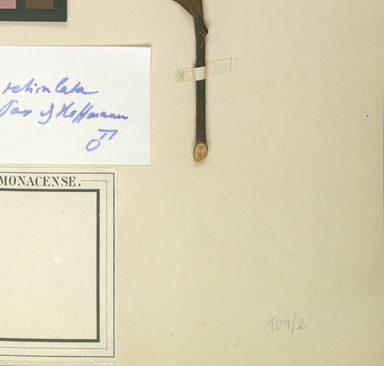 reticulata
Pax & Hoffmann
♂
MONACENSE.
109/2